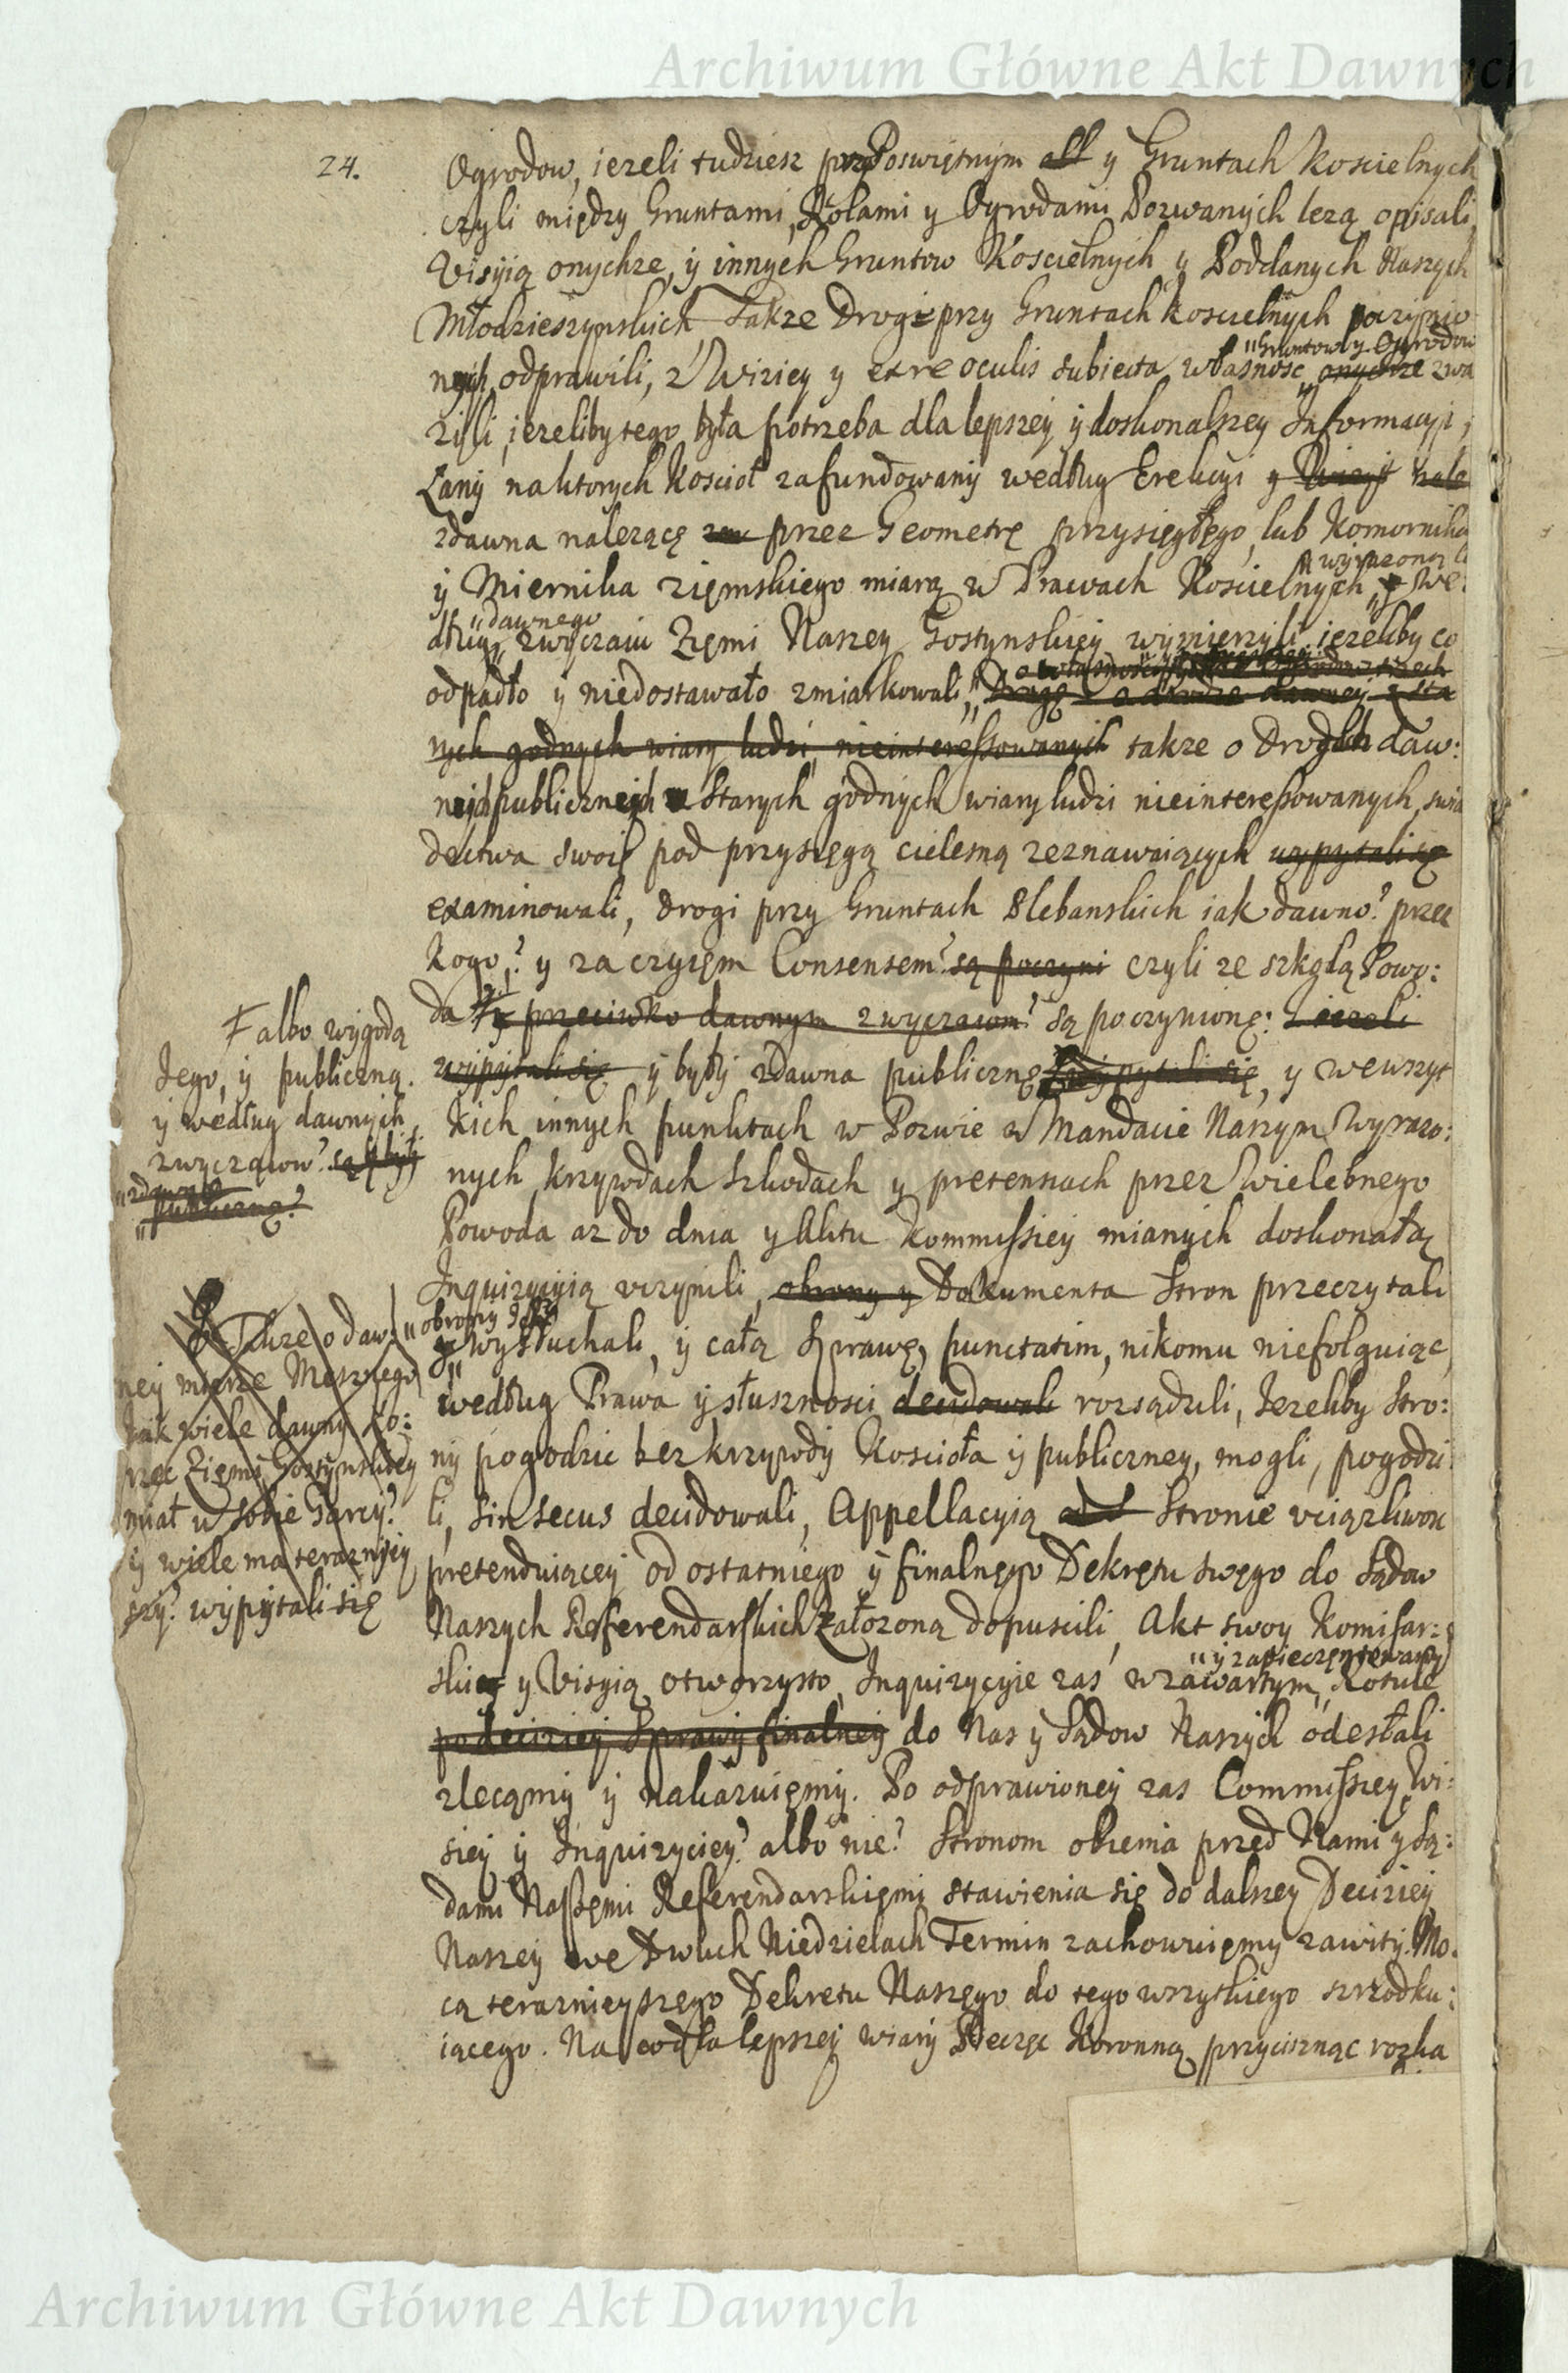 Archiwum Główne Akt Dawnych
24.
Ogrodow, iezeli tudziesz przy Poswiętnym y Gruntach Koscielnych
czyli między Gruntami, Rolami y Ogrodami Pozwanych lezą opisali,
Visyią onychze, y innych Gruntow Koscielnych y Poddanych Naszych
Młodzieszynskich, Takze Drogi przy Gruntach Koscielnych poczynio
nych odprawili, z Wiziey y ex re oculis subiecta własnosc onychze zwa
"Gruntow y Ogrodow
zyli, iezeliby tego była potrzeba dla lepszey y doskonalszey Informacyi,
Łany na ktorych Koscioł zafundowany według Erekcyi y Wizyi nale
zdawna nalezącę przez Geometrę przysięgłego, lub Komornika
y Miernika ziemskiego miarą w Prawach Koscielnych y we:
wyrazoną
dług zwyczaiu Ziemi Naszey Gostynskiey wymierzyli iezeliby co
"dawnego
odpadło y niedostawało zmiarkowali, Drogę o drodze dawney y sta
rych godnych wiary ludzi, nieinteressowanych takze o Drogach daw:
nych publicznych starych godnych wiary ludzi nieinteressowanych, swia
dectwa swoie pod przysięgą cielesną zeznawaiących wypytali się
examinowali, drogi przy Gruntach Plebanskich iak dawno? przez
Kogo? y za czyiem Consensem? są poczyni czyli ze szkodą Powo:
da y przeciwko dawnym zwyczaiom? są poczynionę: Iezeli
wypytali się y były zdawna publicznę wypytali się, y we wszyt
kich innych punktach w Pozwie w Mandacie Naszym Wyrazo:
nych krzywdach szkodach y pretensiach przez Wielebnego
Powoda az do dnia y Aktu Kommissiey mianych doskonałą
Inquizycyią uczynili, obrony y Dokumenta Stron przeczytali
"obrony
y wysłuchali, y całą Sprawę, punctatim, nikomu niefolguiąc,
według Prawa y słusznosci decidowali rozsądzili, Iezeliby Stro:
ny pogodzic bez krzywdy Koscioła y publiczney, mogli, pogodzi:
li, sin secus decidowali, Appellacyią Stronie uciązliwosc
pretenduiącey od ostatniego y finalnego Dekretu swego do Sądow
Naszych Referendarskich załozoną dopuscili, Akt swoy Komisar:
ski y Visyią otworzysto, Inquizycyie zas w zawartym Rotule
"y zapieczętowany
po deciziey Sprawy finalney do Nas y Sądow Naszych odesłali
zlecamy y nakazuiemy. Po odprawioney zas Commissiey, Wi:
siey y Inquizyciey? albo nie? Stronom obiema przed Nami y Są:
dami Naszemi Referendarskiemi stawienia się do dalszey Deciziey
Naszey we Dwuch Niedzielach Termin zachowuięmy zawity. Mo:
cą terazniejszego Dekretu Naszego do tego wszytkiego szrzodku:
iącego. Na co dla lepszey wiary Pieczęc Koronną przycisnąc rozka
≠ albo wygodą
Jego, y publiczną.
y według dawnych
zwyczaiow? są y były
"zdawna
"publicznę?
Takze o daw:
ney mierze Mesznego
Jak wiele dawny Ko:
rzec Ziemi Gostynskiey
miał w sobie Garcy?
y wiele ma terazniey
szy? wypytali się
Archiwum Główne Akt Dawnych